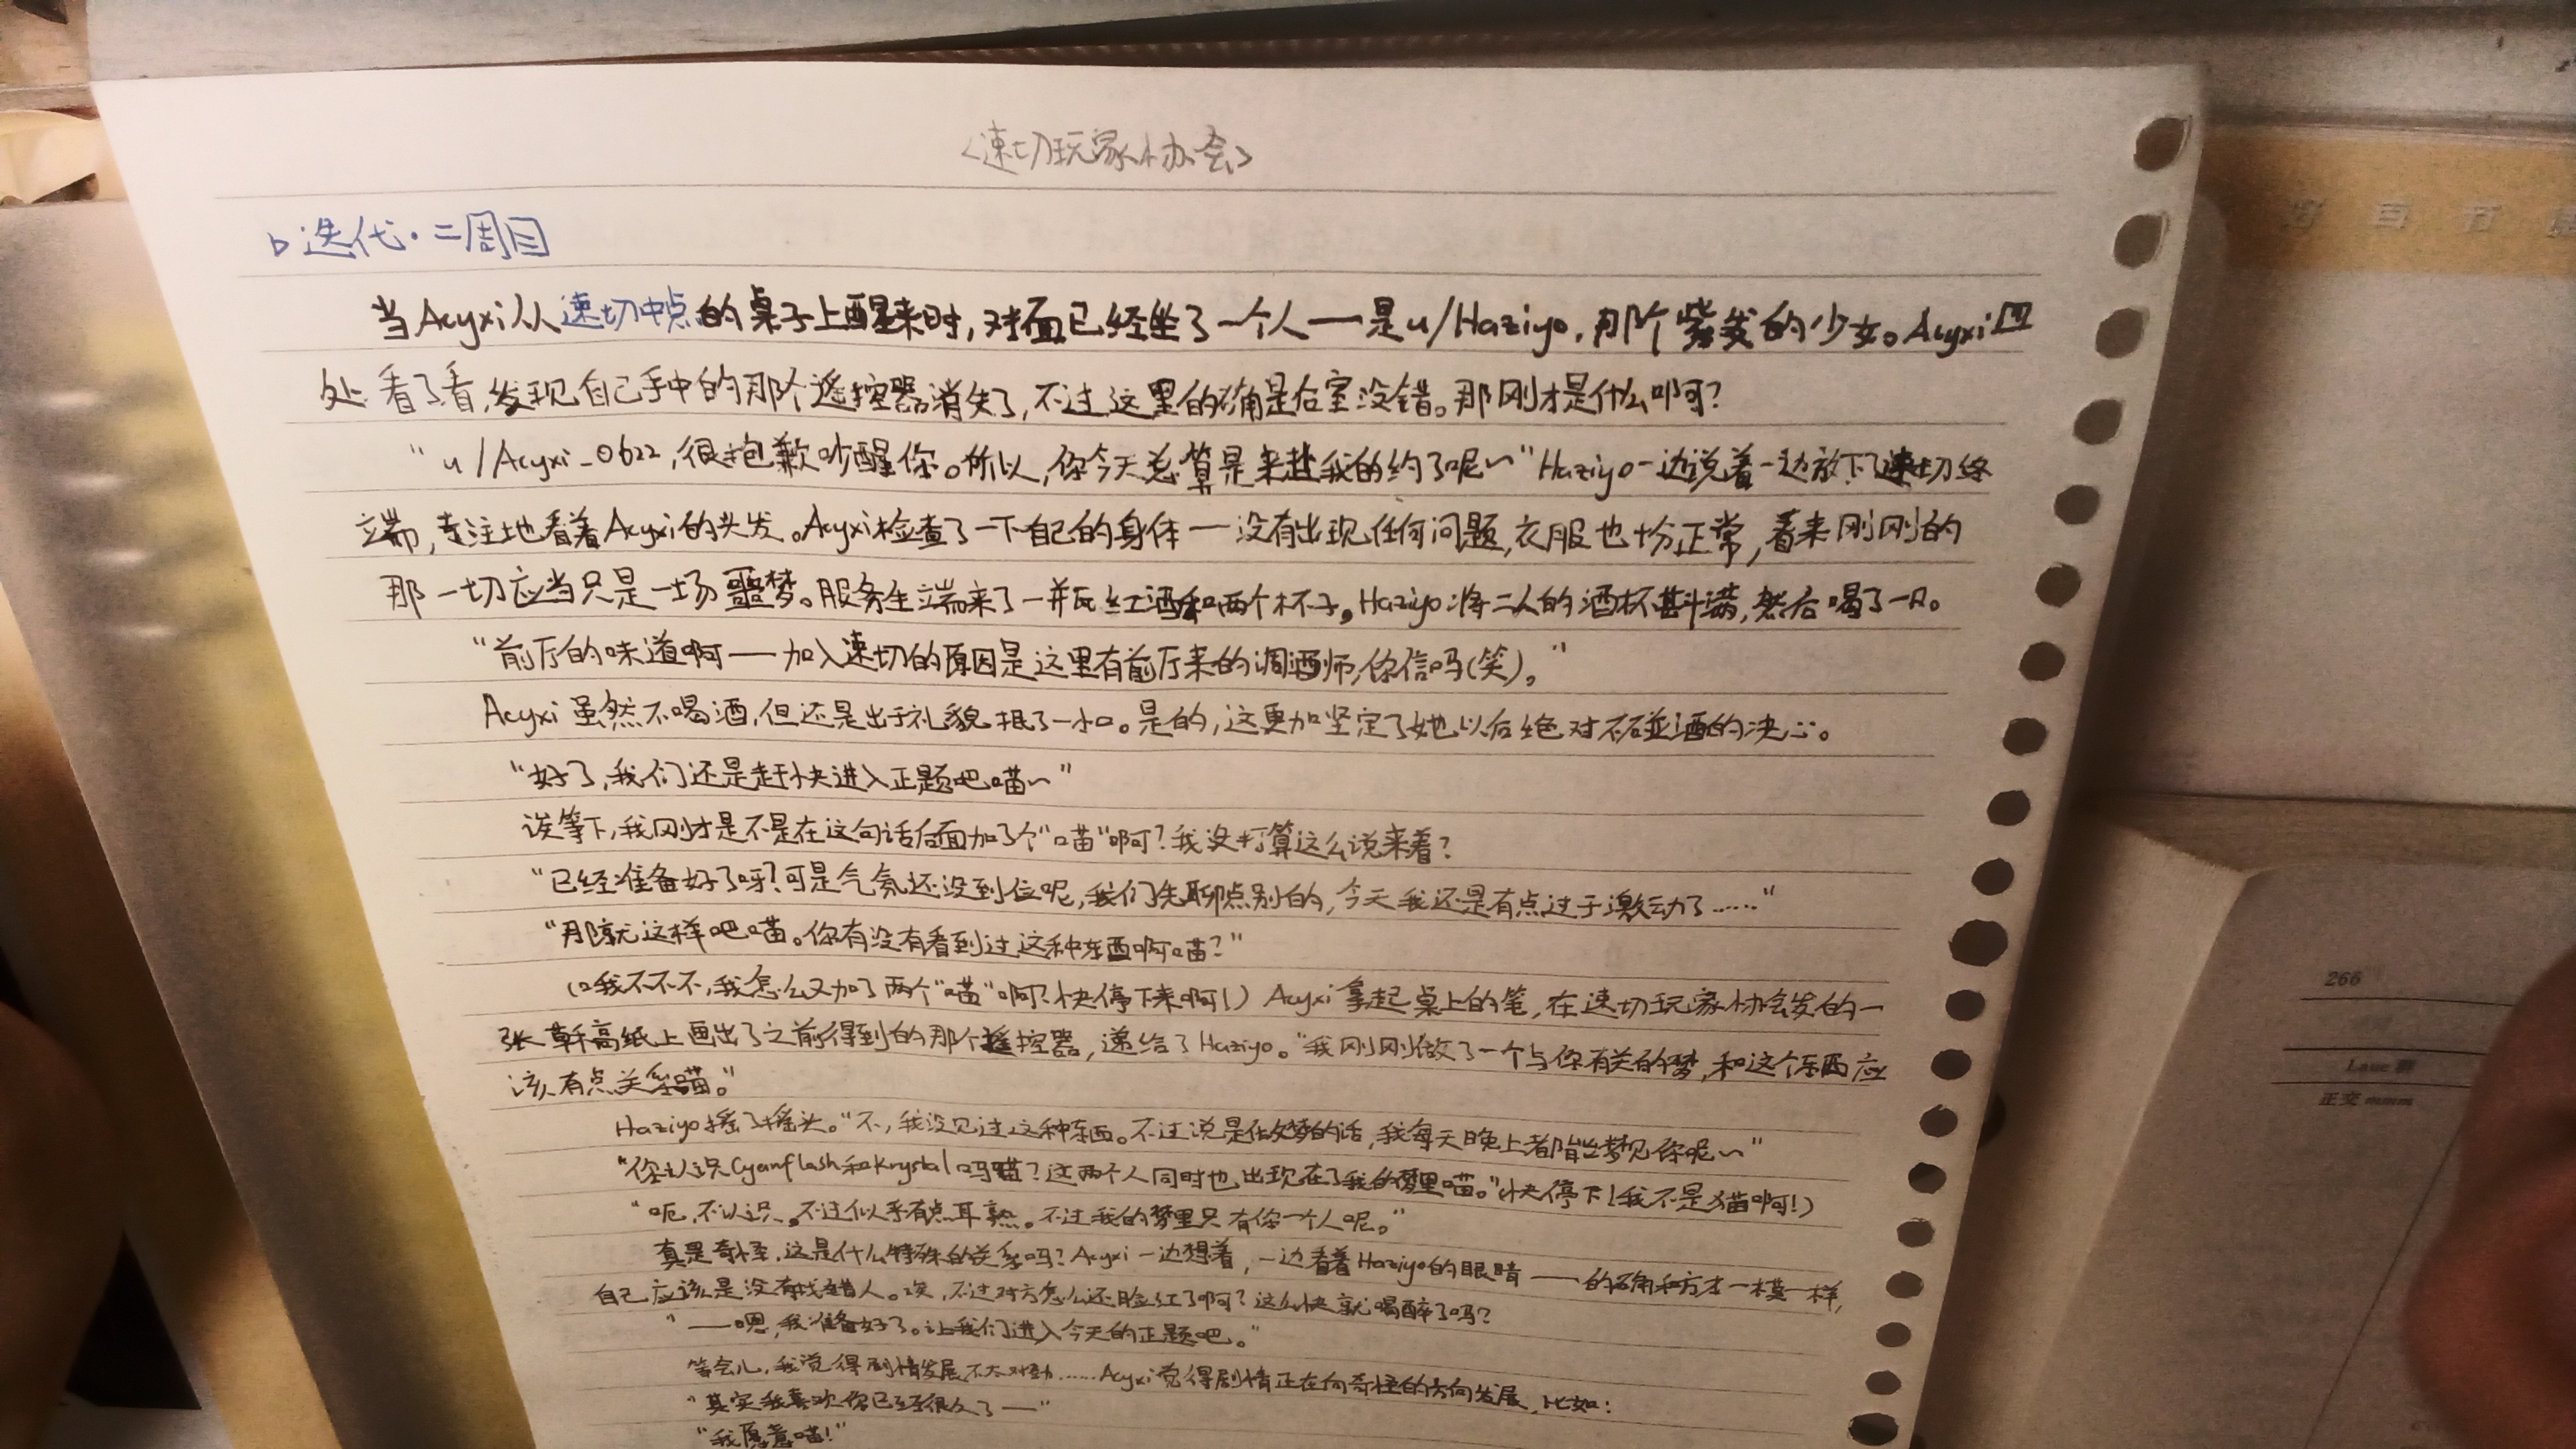 <速切玩家协会>
▷迭代·二周目
当Acyxi从速切中点的桌子上醒来时,对面已经坐了一个人——是u/Haziyo,那个紫发的少女。Acyxi四
处看了看,发现自己手中的那个遥控器消失了,不过这里的确是后室没错。那刚才是什么啊?
“u/Acyxi_0622,很抱歉吵醒你。所以,你今天总算是来赴我的约了呢~”Haziyo一边说着一边放下了速切终
端,专注地看着Acyxi的头发。Acyxi检查了一下自己的身体——没有出现任何问题,衣服也十分正常,看来刚刚的
那一切应当只是一场噩梦。服务生端来了一瓶红酒和两个杯子。Haziyo将二人的酒杯斟满,然后喝了一口。
“前厅的味道啊——加入速切的原因是这里有前厅来的调酒师,你信吗(笑)。”
Acyxi虽然不喝酒,但还是出于礼貌抿了一小口。是的,这更加坚定了她以后绝对不碰酒的决心。
“好了,我们还是赶快进入正题吧喵~”
诶等下,我刚才是不是在这句话后面加了个“喵”啊?我没打算这么说来着?
“已经准备好了呀?可是气氛还没到位呢,我们先聊点别的,今天我还是有点过于激动了……”
“那就这样吧喵。你有没有看到过这种东西啊喵?”
不不不,我怎么又加了两个“喵”啊?快停下来啊!)Acyxi拿起桌上的笔,在速切玩家协会发的一
张草稿纸上画出了之前得到的那个遥控器,递给了Haziyo。“我刚刚做了一个与你有关的梦,和这个东西应
该有点关系喵。”
Haziyo摇了摇头。“不,我没见过这种东西。不过说是做梦的话,我每天晚上都能梦见你呢~”
“你认识Cyanflash和Krystal吗喵?这两个人同时也出现在了我的梦里喵。”(快停下!我不是猫啊!)
“呃,不认识。不过似乎有点耳熟。不过我的梦里只有你一个人呢。”
真是奇怪,这是什么特殊的关系吗?Acyxi一边想着,一边看着Haziyo的眼睛——的确和方才一模一样,
自己应该是没有找错人。诶,不过对方怎么还脸红了啊?这么快就喝醉了吗?
“——嗯,我准备好了。让我们进入今天的正题吧。”
等会儿,我觉得剧情发展不太对劲……Acyxi觉得剧情正在向奇怪的方向发展,比如:
“其实我喜欢你已经很久了——”
“我愿意喵!”
266
Laue 群
正交 mmm